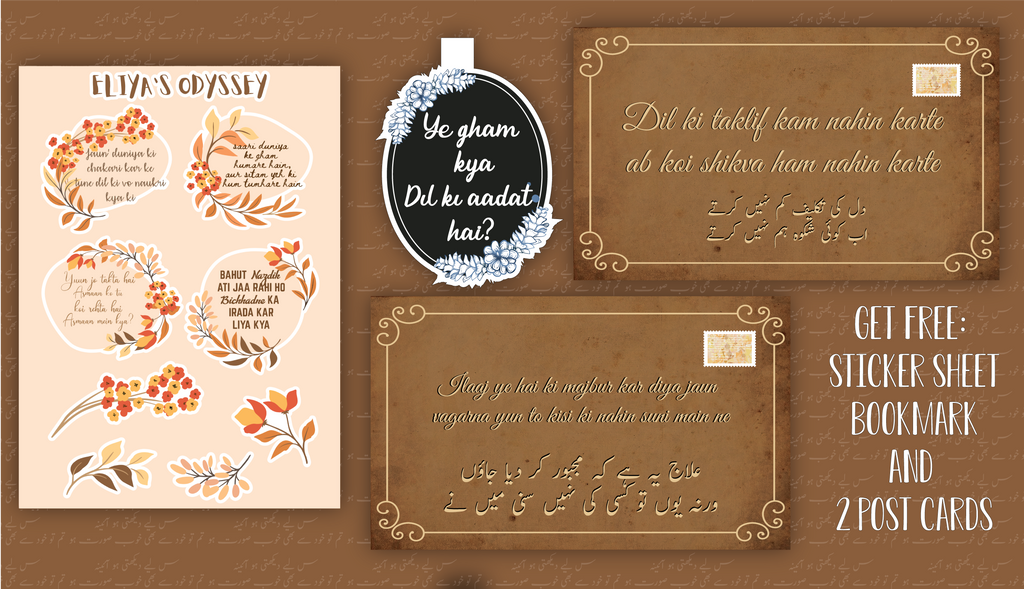 ELIYA'S ODYSSEY
Jaun duniya ki
chakari kar ke
tune dil ki vo naukri
kya ki
saari duniya
ke gham
humare hain,
aur sitam yeh ki
hum tumhare hain
Yuun jo takta hai
Asmaan ko tu
koi rehta hai
Asmaan mein kya?
BAHUT Nazdik
ATI JAA RAHI HO
Bichhadne KA
IRADA KAR
LIYA KYA
Ye gham
kya
Dil ki aadat
hai?
Dil ki taklif kam nahin karte
ab koi shikva ham nahin karte
دل کی تکلیف کم نہیں کرتے
اب کوئی شکوہ ہم نہیں کرتے
Ilaaj ye hai ki majbur kar diya jaun
vagarna yun to kisi ki nahin suni main ne
علاج یہ ہے کہ مجبور کر دیا جاؤں
ورنہ یوں تو کسی کی نہیں سنی میں نے
GET FREE:
STICKER SHEET
BOOKMARK
AND
2 POST CARDS